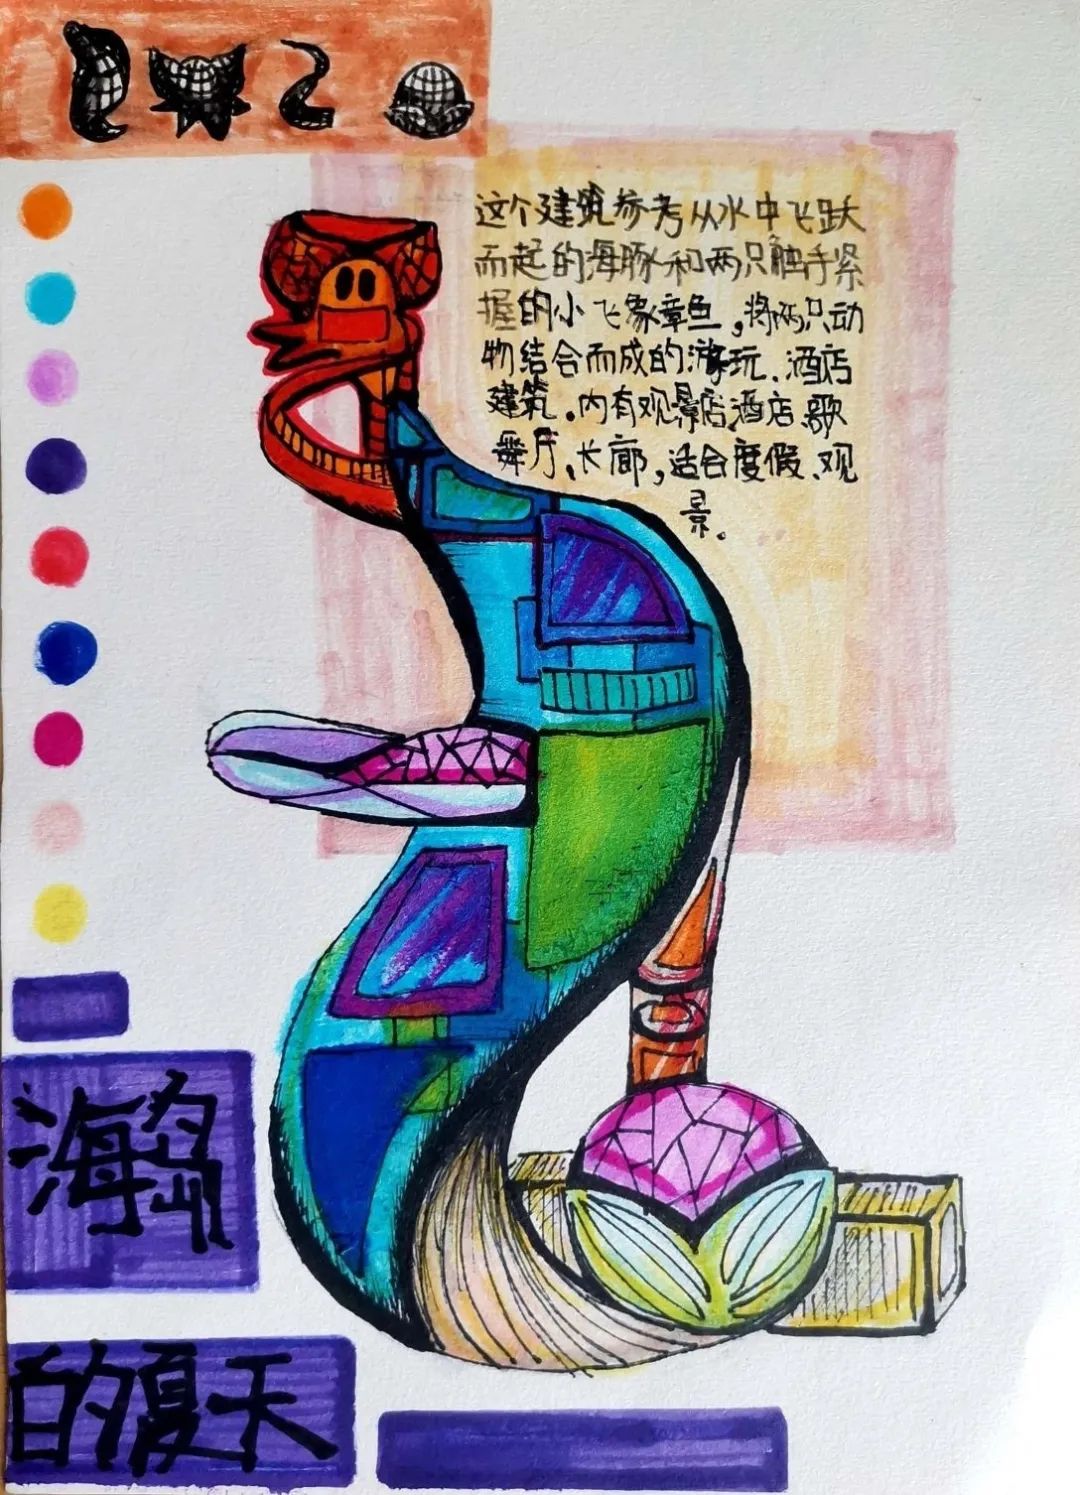 这个建筑参考从水中飞跃
而起的海豚和两只触手紧
握的小飞象章鱼,将两只动
物结合而成的游玩、酒店
建筑。内有观景店酒店、歌
舞厅、长廊,适合度假、观
景。
海岛
的夏天